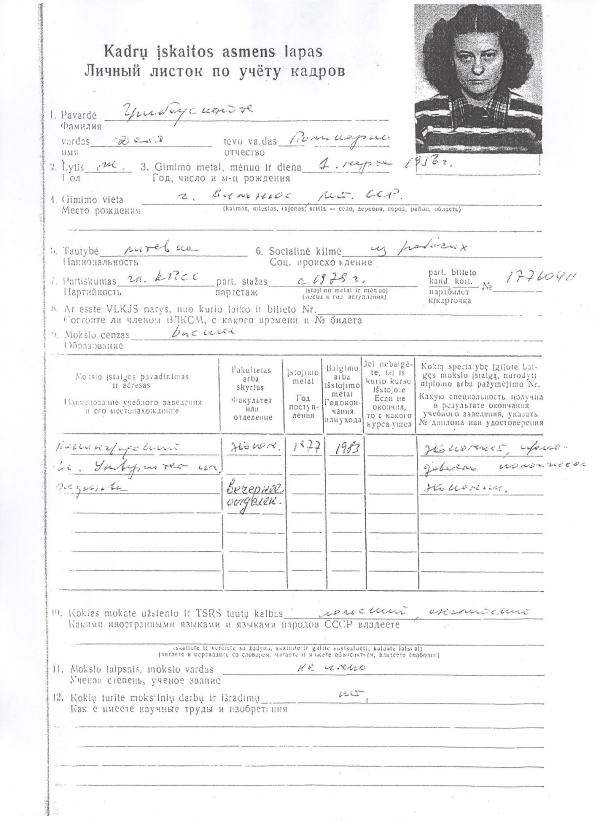 Kadrų įskaitos asmens lapas
Личный листок по учёту кадров
1. Pavardė Грибаускайте
Фамилия
vardas Даля tėvo vardas Поликарпо
имя отчество
2. Lytis ж. 3. Gimimo metai, mėnuo ir diena 1 марта 1956 г.
Пол Год, число и м-ц рождения
4. Gimimo vieta г. Вильнюс, Лит. ССР.
Место рождения (kaimas, miestas, rajonas, sritis — село, деревня, город, район, область)
5. Tautybė литовка 6. Socialinė kilmė из рабочих
Национальность Соц. происхождение
7. Partiškumas чл. КПСС part. stažas с 1979 г. part. bilieto kand. kort. №
Партийность партстаж (įstojimo metai ir mėnuo) (месяц и год вступления) партбилет к/карточка
8. Ar esate VLKJS narys, nuo kurio laiko ir bilieto Nr.
Состоите ли членом ВЛКСМ, с какого времени и № билета
9. Mokslo cenzas высшее
Образование
Mokslo įstaigos pavadinimas ir adresas
Наименование учебного заведения и его местонахождение
Fakultetas arba skyrius
Факультет или отделение
Įstojimo metai
Год поступления
Baigimo arba išstojimo metai
Год окончания или ухода
Jei nebaigė, tai iš kurio kurso išstojote
Если не окончил, то с какого курса ушел
Kokią specialybę įgijote baigęs mokslo įstaigą, nurodyti diplomo arba pažymėjimo Nr.
Какую специальность получил в результате окончания учебного заведения, указать № диплома или удостоверения
Ленинградский эконом. 1977 1983 экономист, препо-
ос. Университет им. даватель политической
Жданова вечернее отделен. экономии.
10. Kokias mokate užsienio ir TSRS tautų kalbas польский, английский
Какими иностранными языками и языками народов СССР владеете
(skaitote ir verčiate su žodynu, skaitote ir galite susikalbėti, kalbate laisvai)
(читаете и переводите со словарем, читаете и можете объясняться, владеете свободно)
11. Mokslo laipsnis, mokslo vardas не имею
Ученая степень, ученое звание
12. Kokių turite mokslinių darbų ir išradimų нет,
Какие имеете научные труды и изобретения